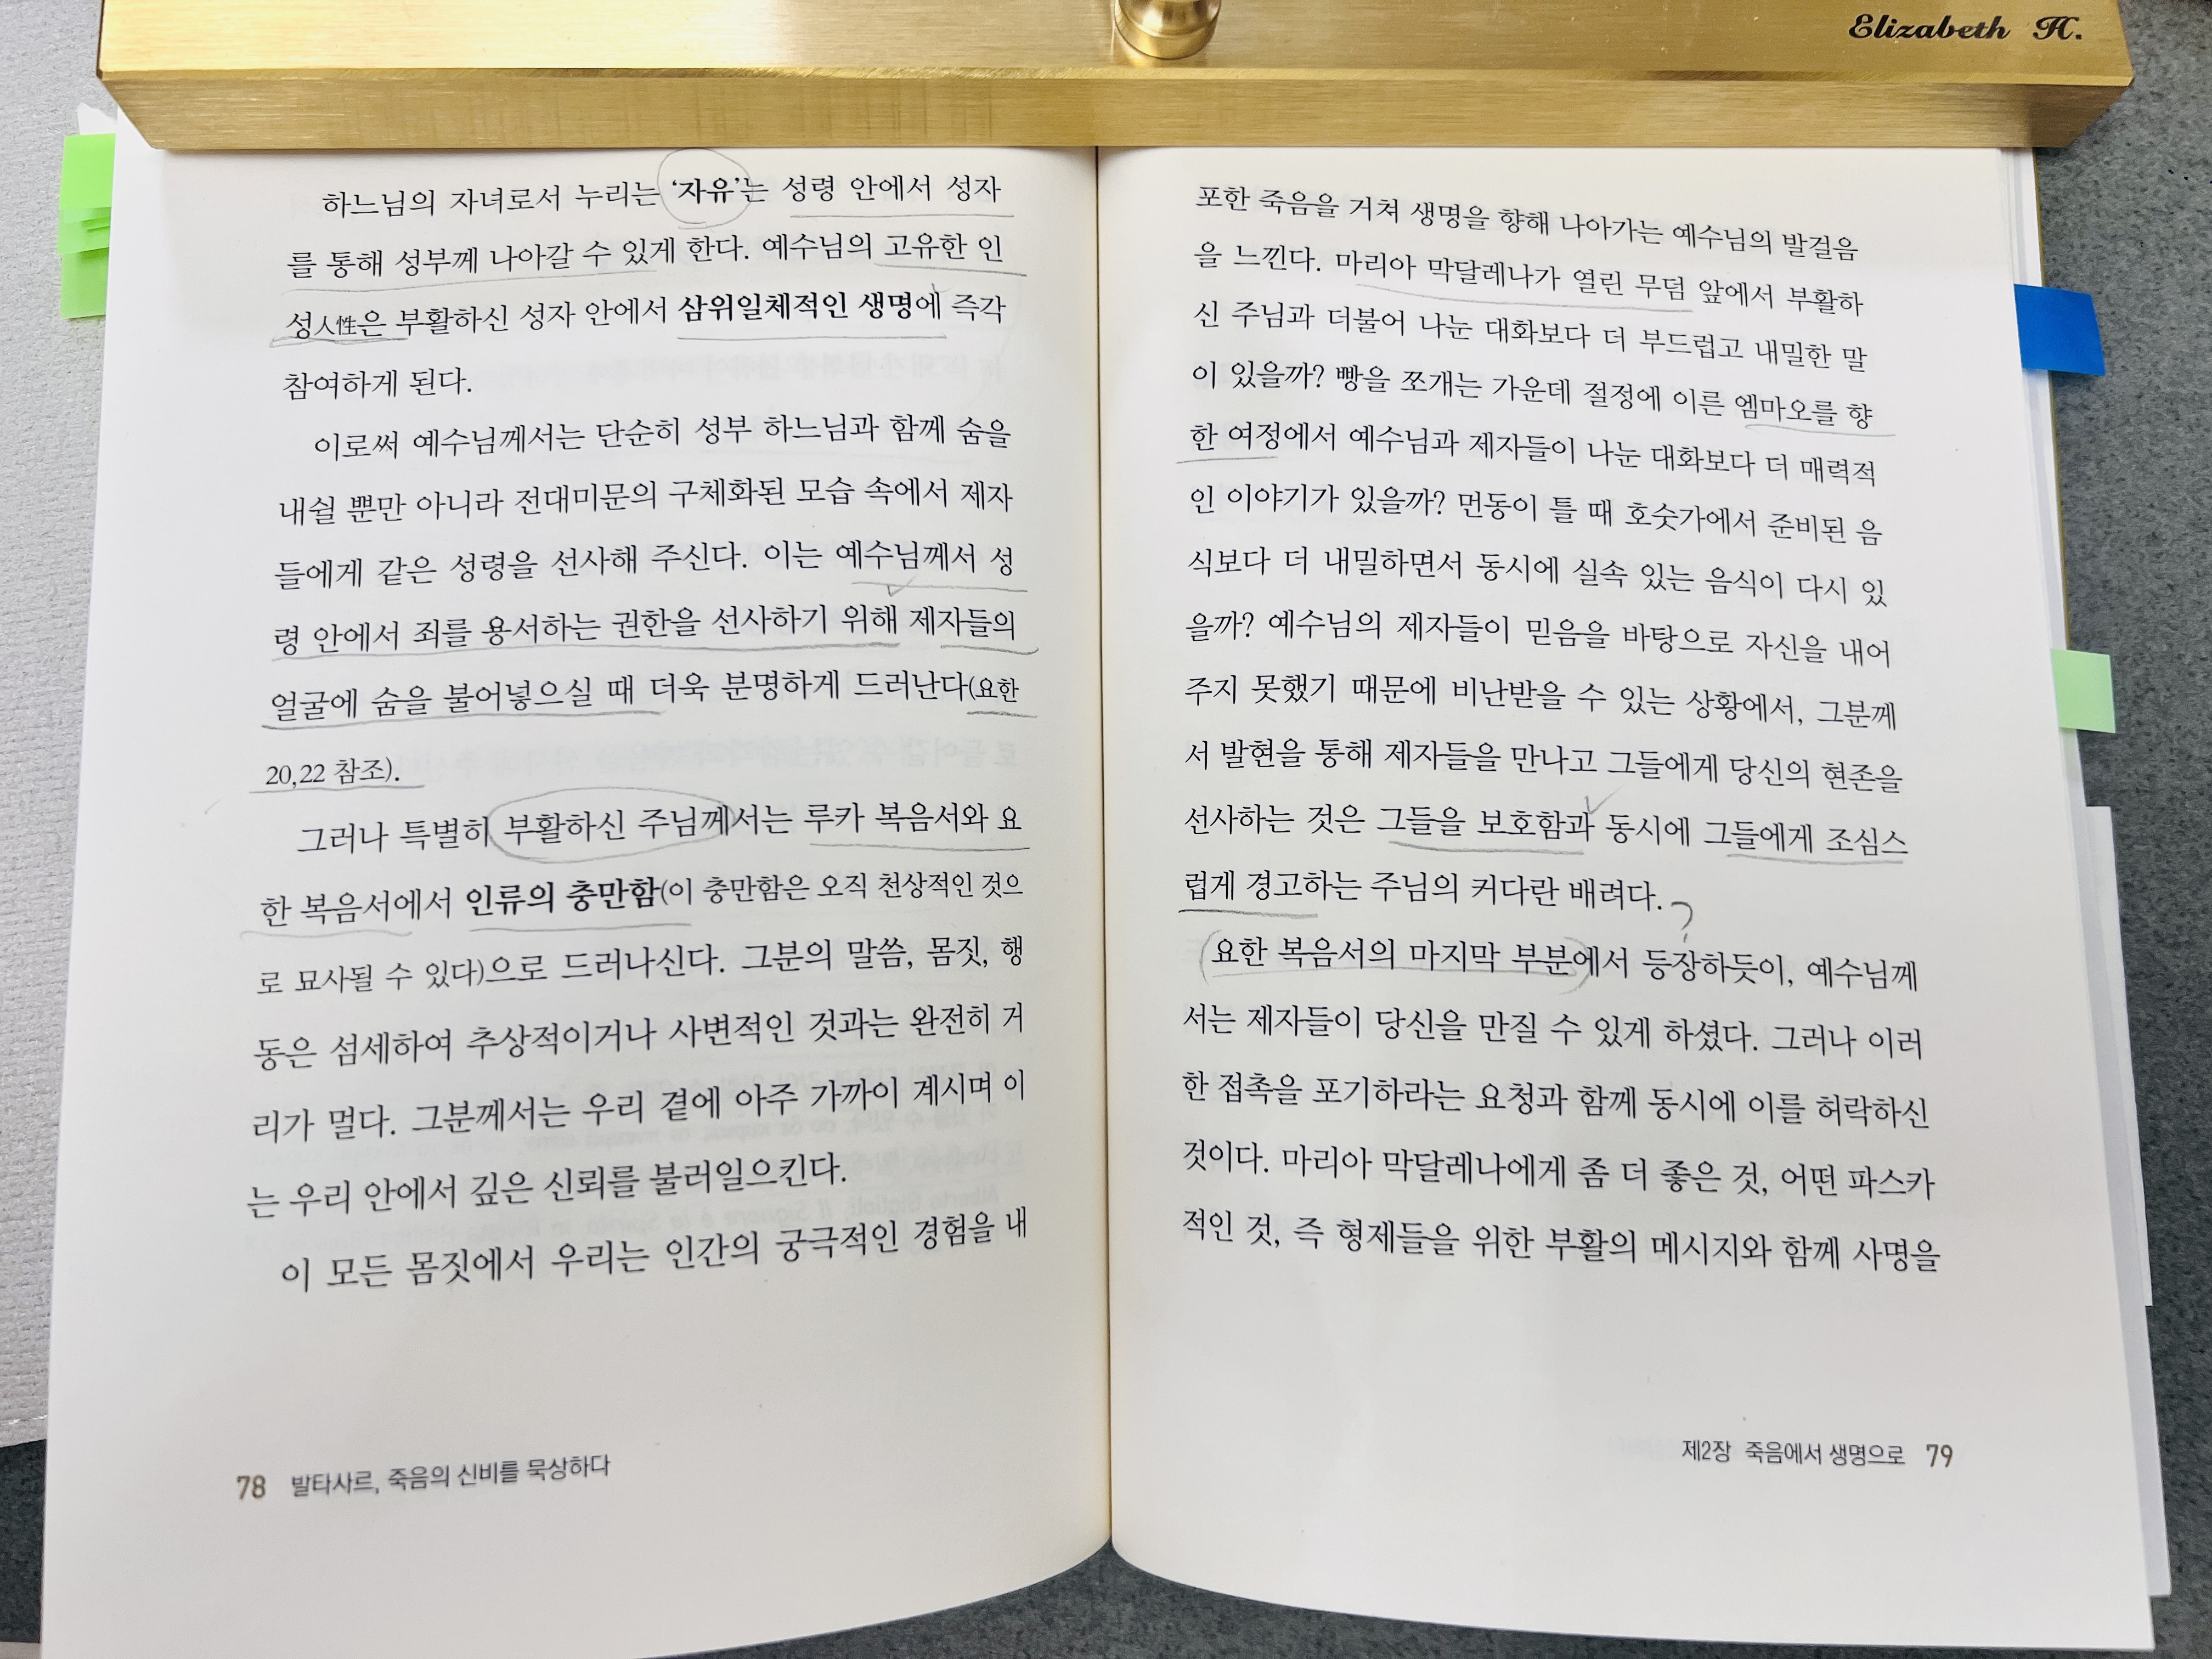 Elizabeth H.
하느님의 자녀로서 누리는 ‘자유’는 성령 안에서 성자
를 통해 성부께 나아갈 수 있게 한다. 예수님의 고유한 인
성人性은 부활하신 성자 안에서 삼위일체적인 생명에 즉각
참여하게 된다.
이로써 예수님께서는 단순히 성부 하느님과 함께 숨을
내쉴 뿐만 아니라 전대미문의 구체화된 모습 속에서 제자
들에게 같은 성령을 선사해 주신다. 이는 예수님께서 성
령 안에서 죄를 용서하는 권한을 선사하기 위해 제자들의
얼굴에 숨을 불어넣으실 때 더욱 분명하게 드러난다(요한
20,22 참조).
그러나 특별히 부활하신 주님께서는 루카 복음서와 요
한 복음서에서 인류의 충만함(이 충만함은 오직 천상적인 것으
로 묘사될 수 있다)으로 드러나신다. 그분의 말씀, 몸짓, 행
동은 섬세하여 추상적이거나 사변적인 것과는 완전히 거
리가 멀다. 그분께서는 우리 곁에 아주 가까이 계시며 이
는 우리 안에서 깊은 신뢰를 불러일으킨다.
이 모든 몸짓에서 우리는 인간의 궁극적인 경험을 내
78 발타사르, 죽음의 신비를 묵상하다
포한 죽음을 거쳐 생명을 향해 나아가는 예수님의 발걸음
을 느낀다. 마리아 막달레나가 열린 무덤 앞에서 부활하
신 주님과 더불어 나눈 대화보다 더 부드럽고 내밀한 말
이 있을까? 빵을 쪼개는 가운데 절정에 이른 엠마오를 향
한 여정에서 예수님과 제자들이 나눈 대화보다 더 매력적
인 이야기가 있을까? 먼동이 틀 때 호숫가에서 준비된 음
식보다 더 내밀하면서 동시에 실속 있는 음식이 다시 있
을까? 예수님의 제자들이 믿음을 바탕으로 자신을 내어
주지 못했기 때문에 비난받을 수 있는 상황에서, 그분께
서 발현을 통해 제자들을 만나고 그들에게 당신의 현존을
선사하는 것은 그들을 보호함과 동시에 그들에게 조심스
럽게 경고하는 주님의 커다란 배려다. ?
요한 복음서의 마지막 부분에서 등장하듯이, 예수님께
서는 제자들이 당신을 만질 수 있게 하셨다. 그러나 이러
한 접촉을 포기하라는 요청과 함께 동시에 이를 허락하신
것이다. 마리아 막달레나에게 좀 더 좋은 것, 어떤 파스카
적인 것, 즉 형제들을 위한 부활의 메시지와 함께 사명을
제2장 죽음에서 생명으로 79